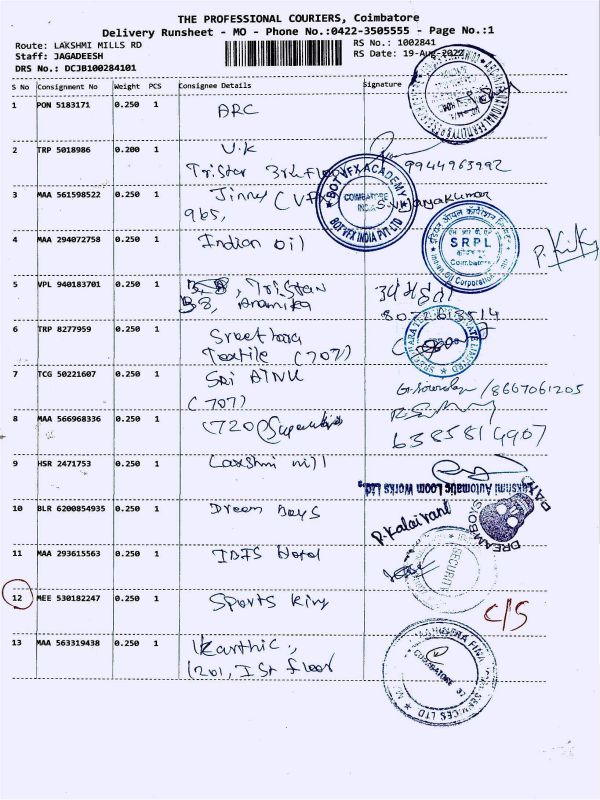 THE PROFESSIONAL COURIERS, Coimbatore
Delivery Runsheet - MO - Phone No.:0422-3505555 - Page No.:1
Route: LAKSHMI MILLS RD
RS No.: 1002841
Staff: JAGADEESH
RS Date: 19-Aug-2022
DRS No.: DCJB100284101
S No Consignment No Weight PCS Consignee Details Signature
1 PON 5183171 0.250 1 ARC
2 TRP 5018986 0.200 1 V.K
Tristar 3rd Floor
9944963992
3 MAA 561598522 0.250 1 Jinny (VFX
965,
S.Vijayakumar
BOT VFX ACADEMY
COIMBATORE
INDIA
BOT VFX INDIA PVT LTD
4 MAA 294072758 0.250 1 Indian oil
SRPL
Coimbatore
Indian Oil Corporation
5 VPL 940183701 0.250 1 Tristan
B8, Anamika
6 TRP 8277959 0.250 1 Sreethara
Textile (707)
7 TCG 50221607 0.250 1 Sri AINU
(707)
8667061205
8 MAA 566968336 0.250 1 (720)
6385814907
9 HSR 2471753 0.250 1 Laxshmi mill
Lakshmi Automatic Loom Works Ltd.,
10 BLR 6200854935 0.250 1 Dream Boys
P.Kalaivani
DREAMBOYS
11 MAA 293615563 0.250 1 IBIS Hotel
SECURITY
12 MEE 530182247 0.250 1 Sports King
C/S
13 MAA 563319438 0.250 1 Karthic,
1201, Ist floor
COIMBATORE
SERVICES LTD